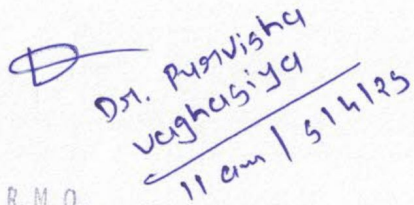 Dr. Purvisha
vaghasiya
11 am / 5/4/25
R M O